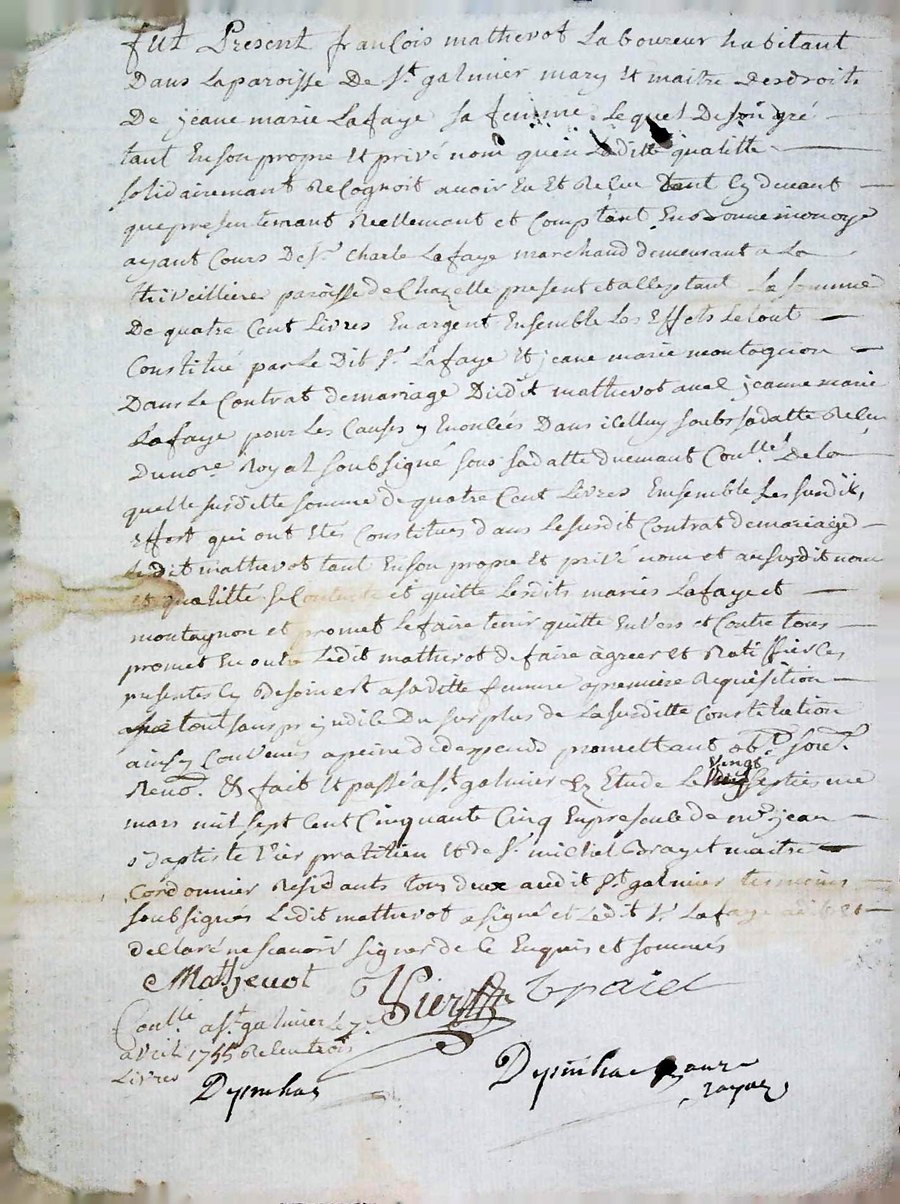 fut Present françois mathevot Laboureur habitant
Dans Laparoisse De St galmier mary Et maitre Desdroits
De jeane marie Lafaye sa femme Lequel De son gré
tant Enson propre Et privé nom quen Laditte qualitté
solidairemant Recognoit avoir Eu Et Receu tant Cy devant
que presentemant Reellemant et Comptant En bonne monoye
ayant Cours De Sr Charle Lafaye marchand demeurant a La
thiveilliere paroisse de Chazelle present et acceptant La somme
De quatre Cent Livres En argent Ensemble Les Effets Le tout
Constitué par Le Dit Sr Lafaye Et jeane marie montagnon
Dans Le Contrat de mariage Dudit mathevot avec jeanne marie
Lafaye pour Les Causes y Enoncées Dans icelluy soubs sadatte Receu
Du nore Royal soubsigné sous sadatte duemant Coullé De la
quelle susditte somme de quatre Cent Livres Ensemble Les susdits
effort qui ont Etés Constitues dans Le susdit Contrat de mariage
Ledit mathevot tant Enson propre Et privé nom et au susdit nom
et qualitté se Contente et quitte Lesdits mariés Lafaye et
montagnon et promet Le faire tenir quitte Envers et Contre tous
promet En outre Ledit mathevot de faire agreer Et Ratiffier Ces
presentes sy Besoin est a saditte femme a premiere Requisition
Le tout sans prejudice Du surplus de La susditte Constitution
ainsy Convenus a peine de depends promettant obt. soumt.
Renont. Et fait Et passé a St galmier Ez Etude Le vingt septieme
mars mil sept Cent Cinquante Cinq En presence de mr jean
Baptiste Vier pratitien Et de Sr michel Brayet maitre
Cordonnier Residants tous deux audit St galmier temoins
soubsignés Ledit mathevot a signé et Ledit Sr Lafaye
declaré ne scavoir signer de Ce Enquis et sommés
Mathevot Vier Braiet
Coullé a St galmier Le 7e
avril 1755 Receu trois
Livres Depinhac
Depinhac Royal